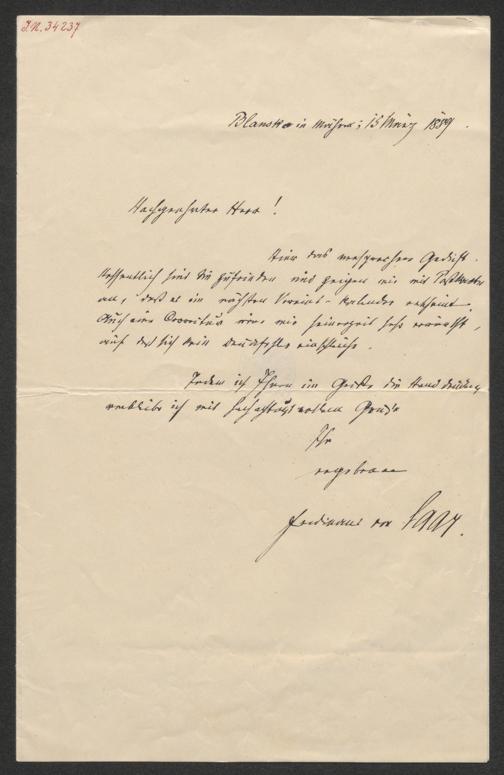 I.N. 34237
Blansko in Mähren; 15 März 1889.
Hochgeehrter Herr!
Hier das versprochene Gedicht.
Hoffentlich sind Sie zufrieden und zeigen mir mit Postkarte
an, daß es im nächsten Vereins-Kalender erscheint.
Auch eine Correctur wäre mir seinerzeit sehr erwünscht,
auf daß sich kein Druckfehler einschleiche.
Indem ich Ihnen im Geiste die Hand drücke,
verbleibe ich mit hochachtungsvollem Gruße
Ihr
ergebener
Ferdinand von Saar.